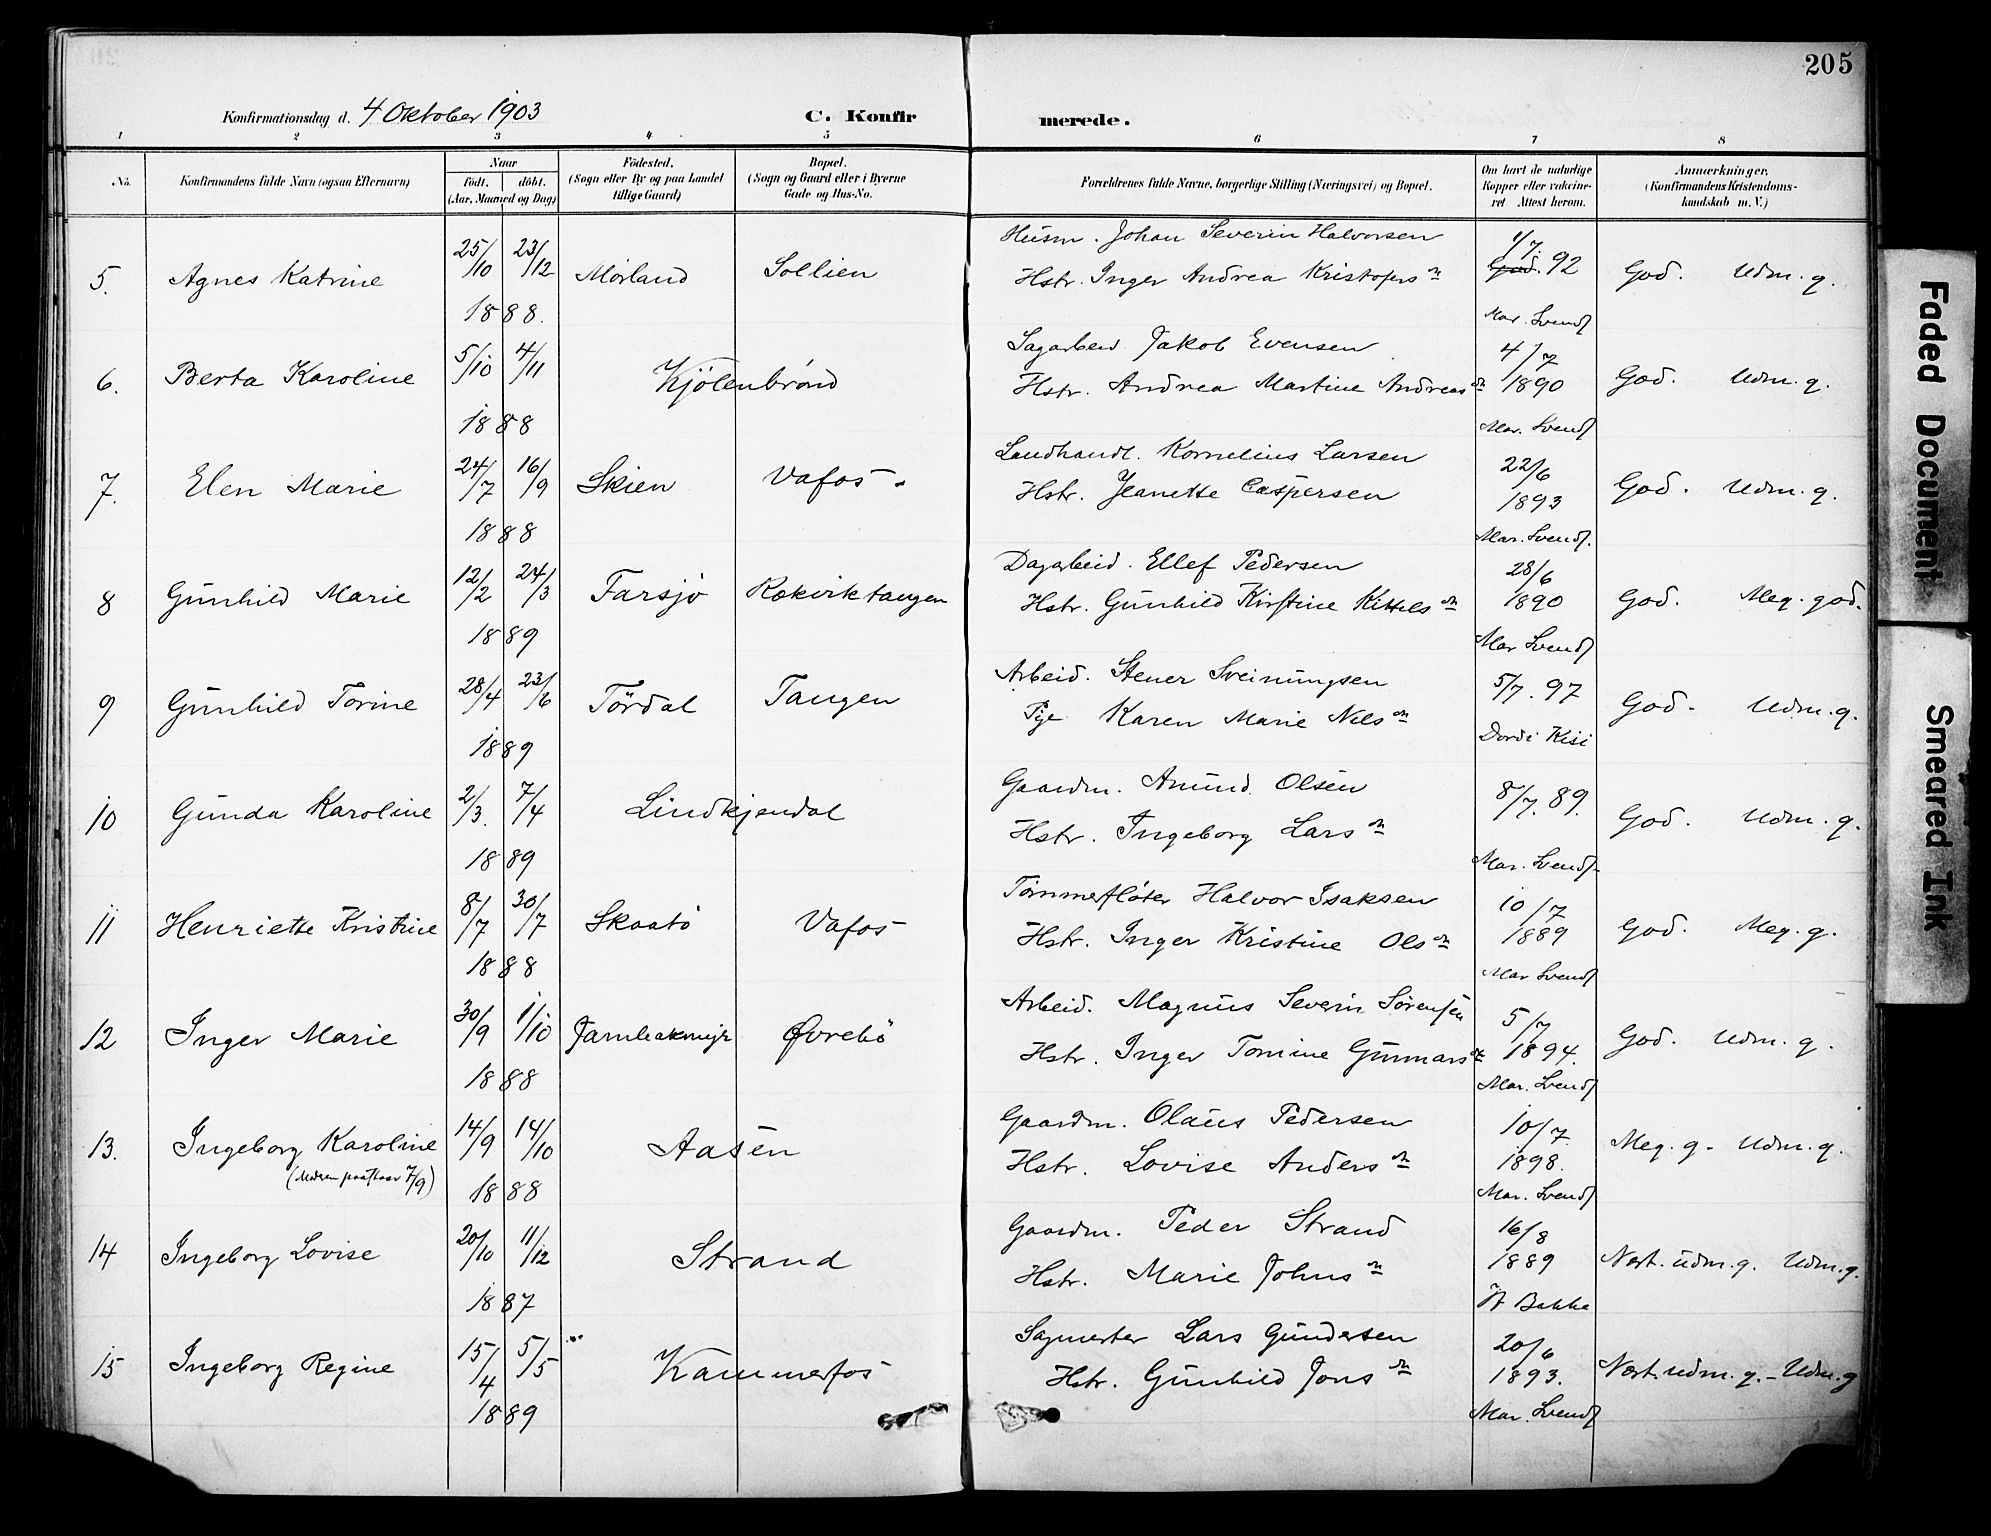 205
Konfirmationsdag d. 4 Oktober 1903 C. Konfirmerede.
1 2 3 4 5 6 7 8
No. Konfirmandens fulde Navn (ogsaa Efternavn) Naar födt. döbt. (Aar, Maaned og Dag) Födested. (Sogn eller By og paa Landet tillige Gaard) Bopæl. (Sogn og Gaard eller i Byerne Gade og Hus-No. Forældrenes fulde Navne, borgerlige Stilling (Næringsvei) og Bopæl. Om havt de naturlige Kopper eller vakcineret. Attest herom. Anmærkninger, (Konfirmandens Kristendomskundskab m. V.)
5. Agnes Katrine 25/10 23/12 1888. Mørland Sollien Husm. Johan Severin Halvorsen
Hstr. Inger Andrea Kristofers dn 1/7 92 Mar. Svends God. Udm. g.
6. Berta Karoline 5/10 4/11 1888 Kjölenbrönd Sagarbeid. Jakob Evensen
Hstr. Andrea Martine Andreas dn 4/7 1890 Mar. Svends God. Udm. g.
7. Elen Marie 24/7 16/9 1888 Skien Vafos. Landhandl. Kornelius Larsen
Hstr. Jeanette Caspersen 22/6 1893 Mar. Svends. God. Udm. g.
8 Gunhild Marie 12/2 24/3 1889 Farsjø Rækviktangen Dagarbeid. Ellef Pedersen
Hstr. Gunhild Kirstine Kittels dn 28/6 1890 Mar Svends God. Meg. god.
9 Gunhild Torine 28/4 23/6 1889 Tördal Tangen Arbeid. Stener Sveinungsen
Pige Karen Marie Nels dn 5/7. 97 Dordi Kisi God. Udm. g.
10 Gunda Karoline 2/3. 7/4 1889 Lindkjendal Gaardm. Amund Olsen
Hstr. Ingeborg Lars dn 8/7. 89. Mar. Svends. God. Udm. g.
11 Henriette Kristine 8/7 30/7 1888 Skaatö Vafos Tømmerfløter Halvor Isaksen
Hstr. Inger Kristine Ols dn 10/7 1889 Mar Svends God. Meg. g.
12 Inger Marie 30/9 1/10 1888 Øvrebö Arbeid. Magnus Severin Sørensen
Hstr. Inger Tomine Gunnars dn 5/7 1894. Mar. Svends God. Udm. g.
13. Ingeborg Karoline (Moderen paastaar 7/9) 14/9 14/10 1888 Aasen Gaardm. Olaus Pedersen
Hstr. Lovise Anders dn 10/7 1898. Mar. Svends Meg. g. Udm. g.
14 Ingeborg Lovise 20/10 11/12 1887 Strand Gaardm. Peder Strand
Hstr. Marie Johns dn 16/8 1889 Bakka Næst. udm. g. Udm. g.
15 Ingeborg Regine 15/4 5/5 1889 Kammerfos Sagmester Lars Gundersen
Hstr. Gunhild Jons dn 20/6 1893. Mar. Svends Næst. udm. g. - Udm. g
Faded Document
Smeared Ink